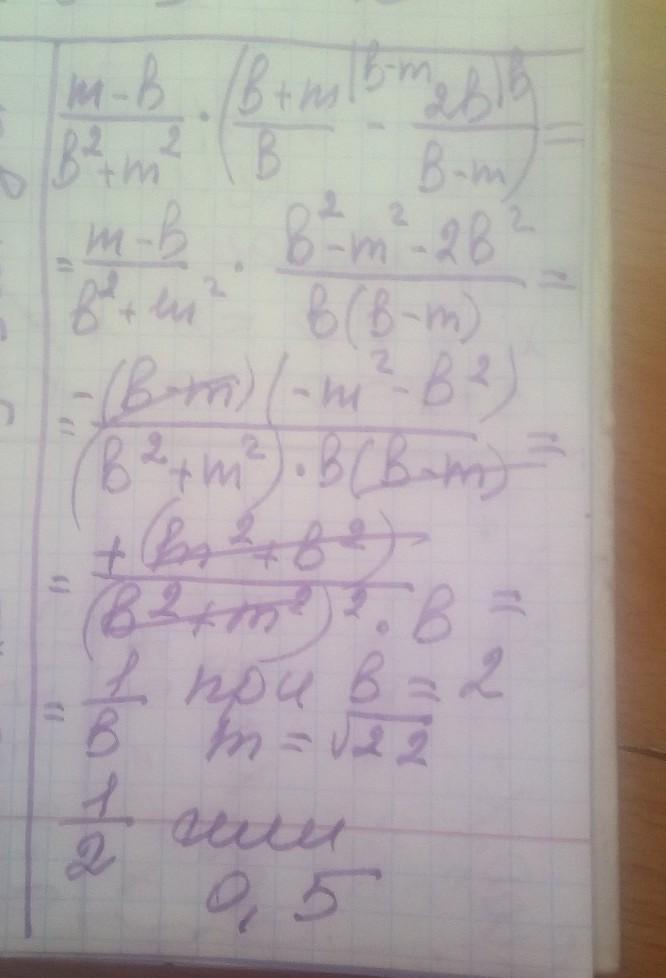 (m-в)/(в²+m²) · ((в+m)/в |в-m - 2в/(в-m) |в) =
= (m-в)/(в²+m²) · (в²-m²-2в²)/(в(в-m)) =
= -(в-m)(-m²-в²)/((в²+m²)·в(в-m)) =
= +(m²+в²)/((в²+m²)²·в) =
= 1/в при в=2
m=√22
1/2 или
0,5